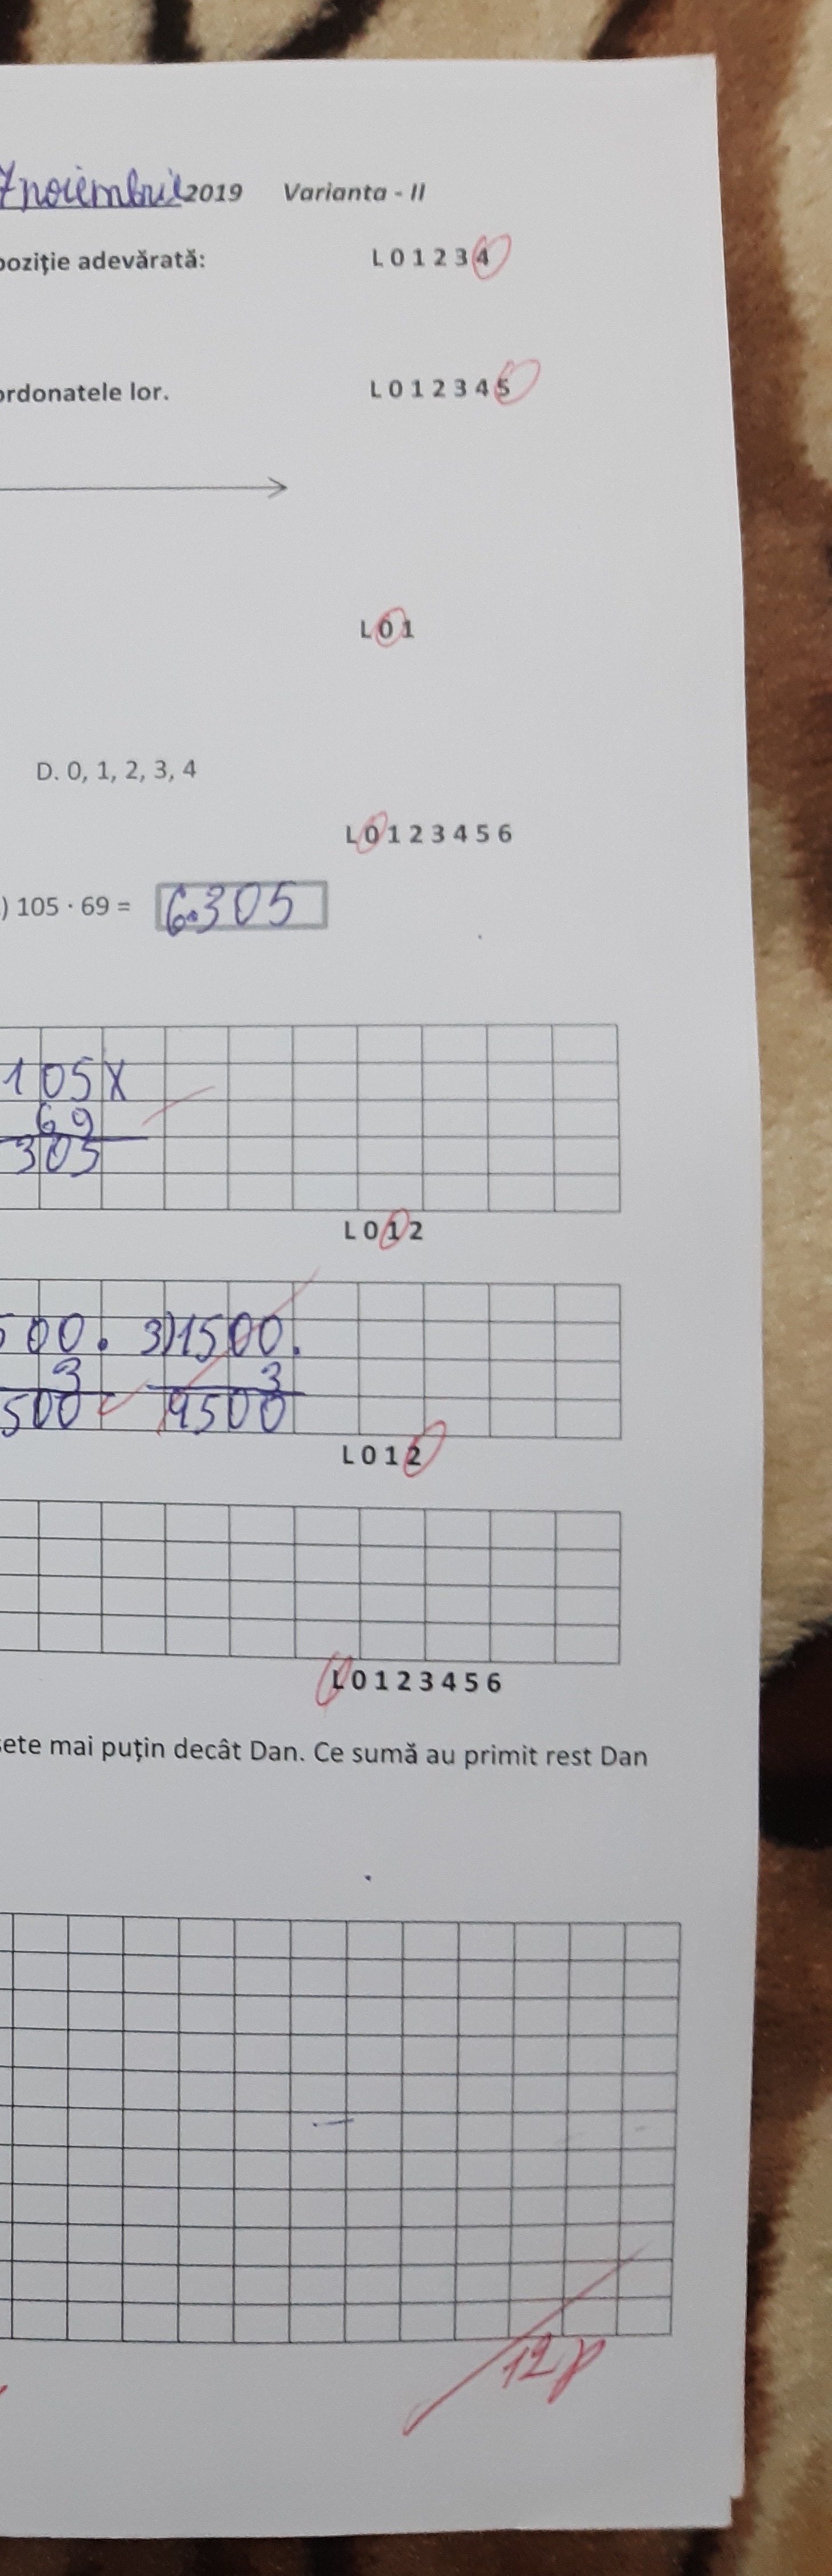 noiembrie 2019 Varianta - II
poziție adevărată: L 0 1 2 3 4
ordonatele lor. L 0 1 2 3 4 5
L 0 1
D. 0, 1, 2, 3, 4
L 0 1 2 3 4 5 6
) 105 · 69 = 6305
105 X
69
305
L 0 1 2
500. 3) 1500.
3 3
500 9500
L 0 1 2
L 0 1 2 3 4 5 6
ete mai puțin decât Dan. Ce sumă au primit rest Dan
12 p